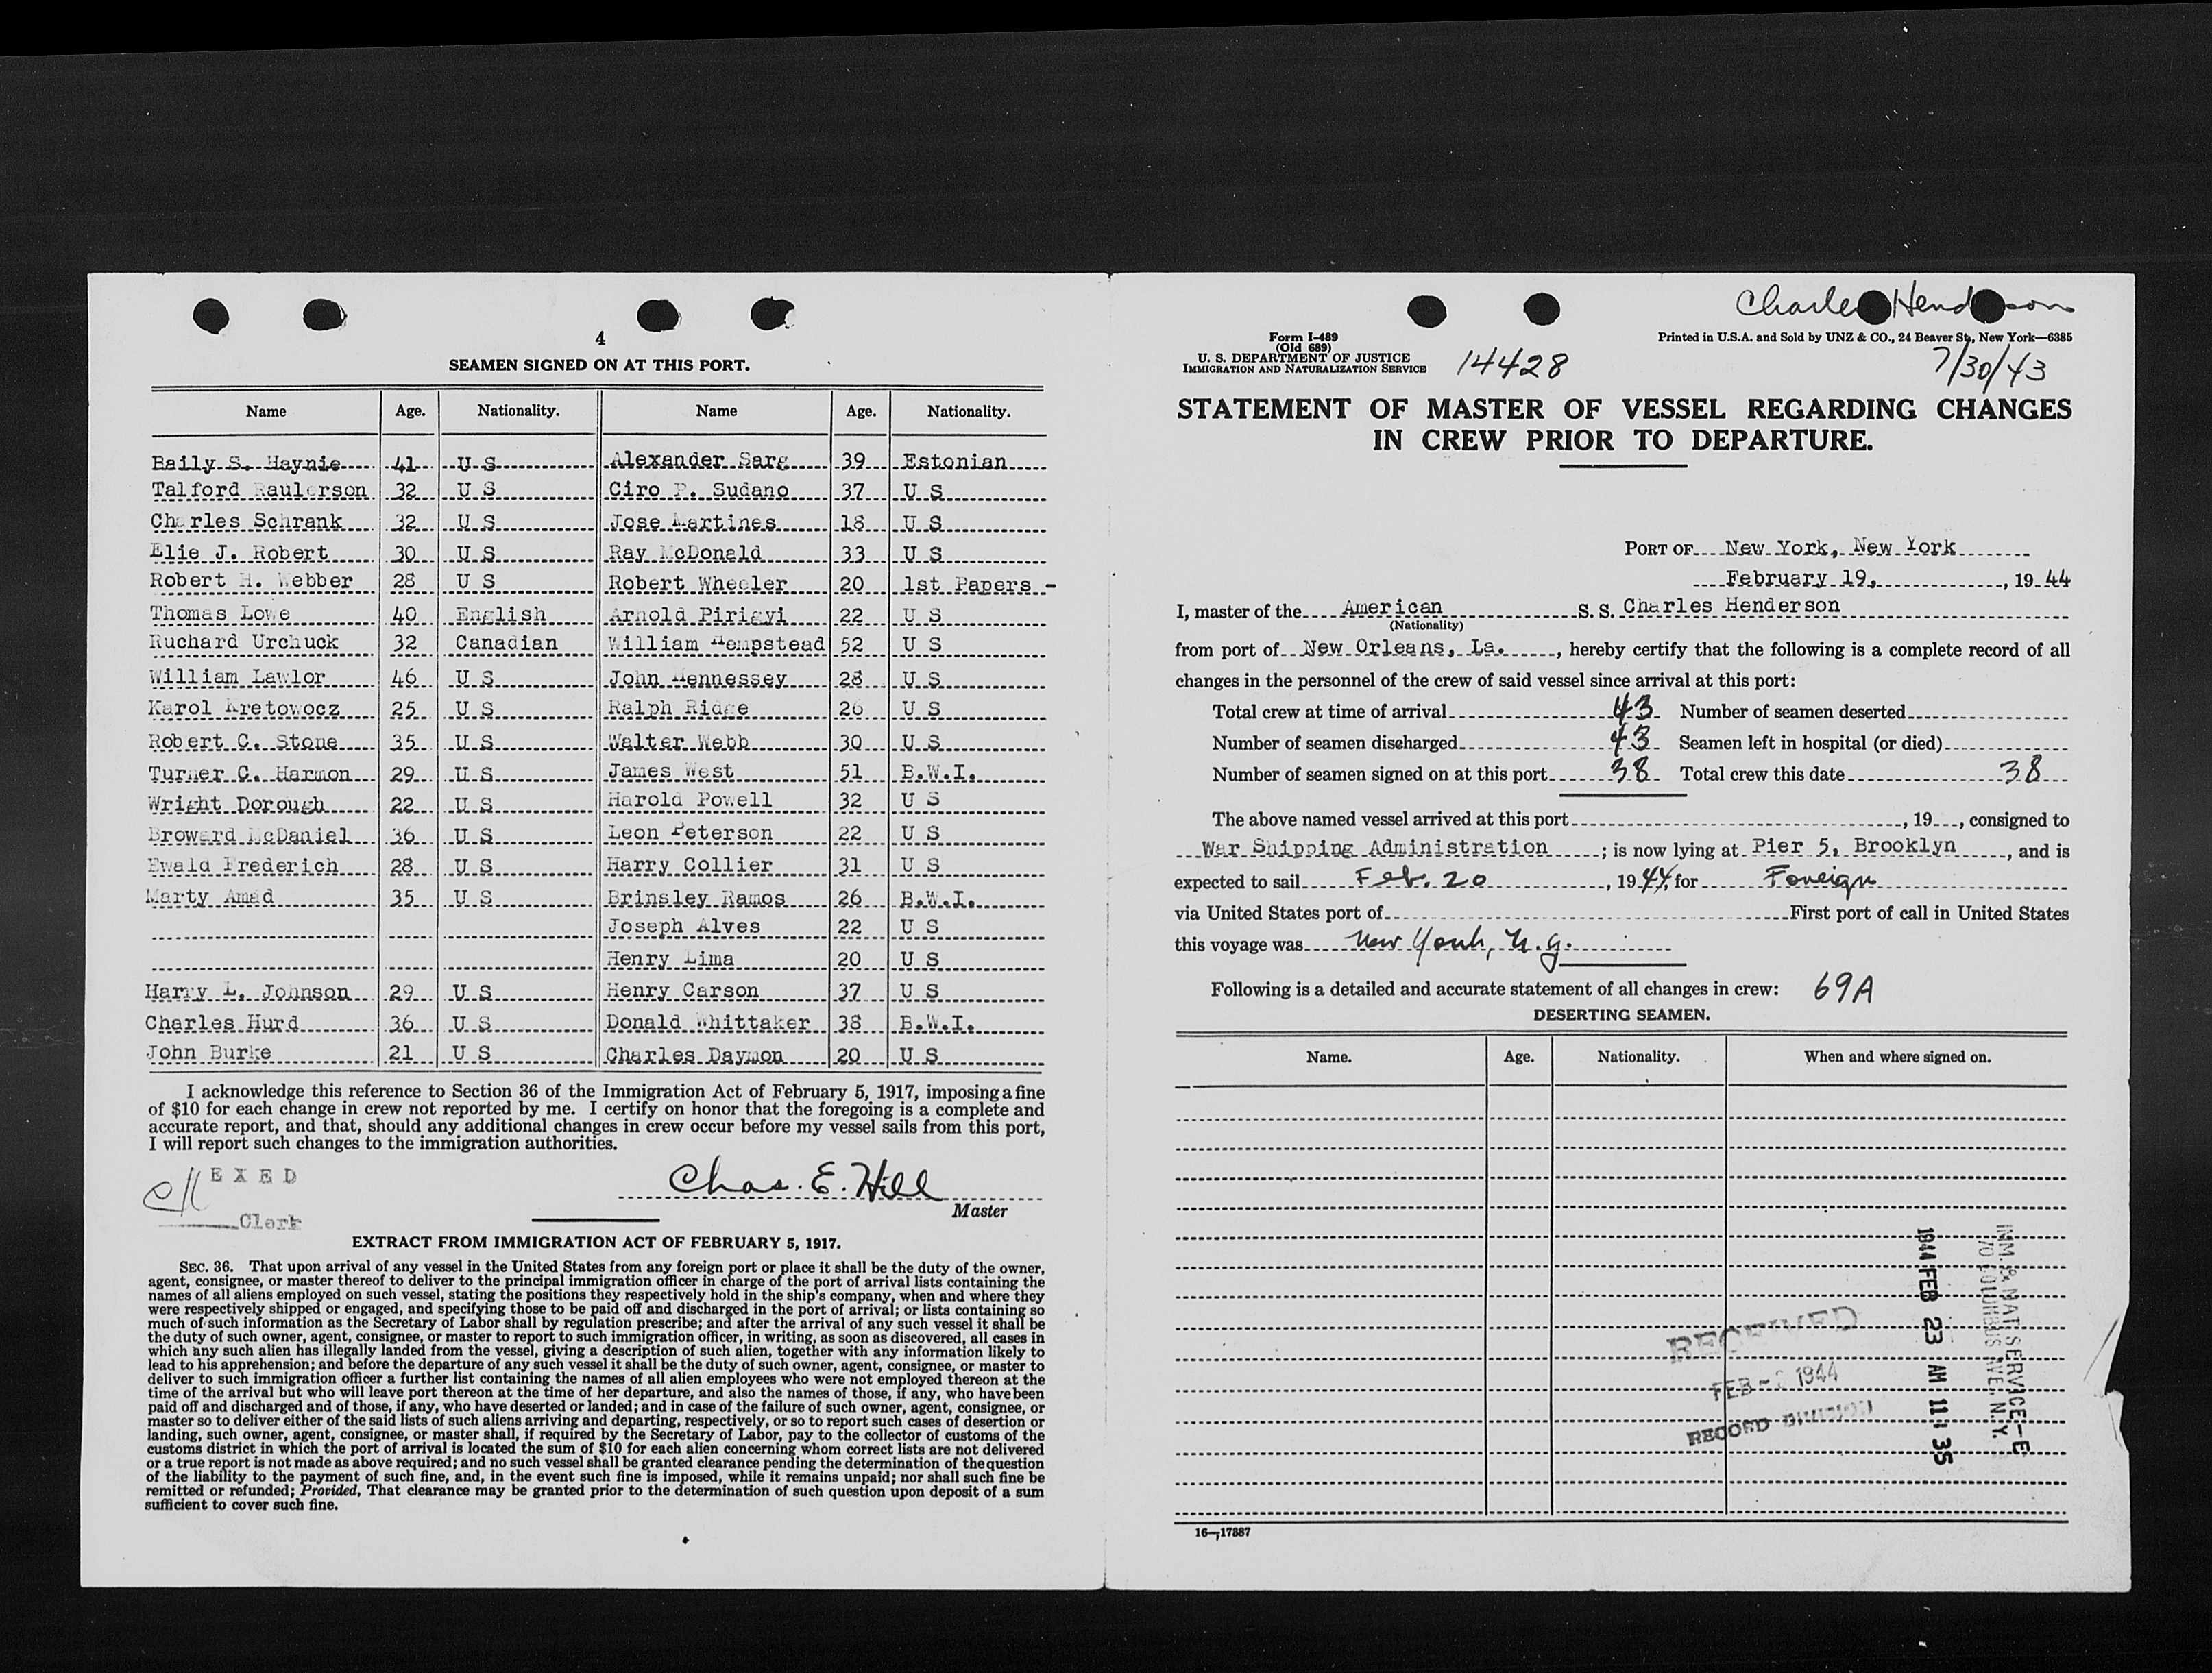 4
SEAMEN SIGNED ON AT THIS PORT.
Name Age. Nationality. Name Age. Nationality.
Baily S. Haynie 41 U S Alexander Sarg 39 Estonian
Talford Raulerson 32 U S Ciro P. Sudano 37 U S
Charles Schrank 32 U S Jose Martines 18 U S
Elie J. Robert 30 U S Ray McDonald 33 U S
Robert H. Webber 28 U S Robert Wheeler 20 1st Papers -
Thomas Lowe 40 English Arnold Pirigyi 22 U S
Ruchard Urchuck 32 Canadian William Hempstead 52 U S
William Lawlor 46 U S John Hennessey 28 U S
Karol Kretowocz 25 U S Ralph Ridge 26 U S
Robert C. Stone 35 U S Walter Webb 30 U S
Turner C. Harmon 29 U S James West 51 B.W.I.
Wright Dorough 22 U S Harold Powell 32 U S
Broward McDaniel 36 U S Leon Peterson 22 U S
Ewald Frederich 28 U S Harry Collier 31 U S
Marty Amad 35 U S Brinsley Ramos 26 B.W.I.
Joseph Alves 22 U S
Henry Lima 20 U S
Harry L. Johnson 29 U S Henry Carson 37 U S
Charles Hurd 36 U S Donald Whittaker 38 B.W.I.
John Burke 21 U S Charles Daymon 20 U S
I acknowledge this reference to Section 36 of the Immigration Act of February 5, 1917, imposing a fine
of $10 for each change in crew not reported by me. I certify on honor that the foregoing is a complete and
accurate report, and that, should any additional changes in crew occur before my vessel sails from this port,
I will report such changes to the immigration authorities.
EXED
Chas. E. Hill
Clerk
Master
EXTRACT FROM IMMIGRATION ACT OF FEBRUARY 5, 1917.
SEC. 36. That upon arrival of any vessel in the United States from any foreign port or place it shall be the duty of the owner,
agent, consignee, or master thereof to deliver to the principal immigration officer in charge of the port of arrival lists containing the
names of all aliens employed on such vessel, stating the positions they respectively hold in the ship's company, when and where they
were respectively shipped or engaged, and specifying those to be paid off and discharged in the port of arrival; or lists containing so
much of such information as the Secretary of Labor shall by regulation prescribe; and after the arrival of any such vessel it shall be
the duty of such owner, agent, consignee, or master to report to such immigration officer, in writing, as soon as discovered, all cases in
which any such alien has illegally landed from the vessel, giving a description of such alien, together with any information likely to
lead to his apprehension; and before the departure of any such vessel it shall be the duty of such owner, agent, consignee, or master to
deliver to such immigration officer a further list containing the names of all alien employees who were not employed thereon at the
time of the arrival but who will leave port thereon at the time of her departure, and also the names of those, if any, who have been
paid off and discharged and of those, if any, who have deserted or landed; and in case of the failure of such owner, agent, consignee, or
master so to deliver either of the said lists of such aliens arriving and departing, respectively, or so to report such cases of desertion or
landing, such owner, agent, consignee, or master shall, if required by the Secretary of Labor, pay to the collector of customs of the
customs district in which the port of arrival is located the sum of $10 for each alien concerning whom correct lists are not delivered
or a true report is not made as above required; and no such vessel shall be granted clearance pending the determination of the question
of the liability to the payment of such fine, and, in the event such fine is imposed, while it remains unpaid; nor shall such fine be
remitted or refunded; Provided, That clearance may be granted prior to the determination of such question upon deposit of a sum
sufficient to cover such fine.
Charles Henderson
Form I-489
(Old 689)
U. S. DEPARTMENT OF JUSTICE
IMMIGRATION AND NATURALIZATION SERVICE
14428
Printed in U.S.A. and Sold by UNZ & CO., 24 Beaver St., New York—6385
7/30/43
STATEMENT OF MASTER OF VESSEL REGARDING CHANGES
IN CREW PRIOR TO DEPARTURE.
PORT OF New York, New York
February 19, , 19 44
I, master of the American S. S. Charles Henderson
(Nationality)
from port of New Orleans, La. , hereby certify that the following is a complete record of all
changes in the personnel of the crew of said vessel since arrival at this port:
Total crew at time of arrival 43 Number of seamen deserted
Number of seamen discharged 43 Seamen left in hospital (or died)
Number of seamen signed on at this port 38 Total crew this date 38
The above named vessel arrived at this port , 19 , consigned to
War Shipping Administration ; is now lying at Pier 5, Brooklyn , and is
expected to sail Feb. 20 , 19 44, for Foreign
via United States port of First port of call in United States
this voyage was New York, N.Y.
Following is a detailed and accurate statement of all changes in crew: 69A
DESERTING SEAMEN.
Name. Age. Nationality. When and where signed on.
IMM. & NAT. SERVICE-E
70 COLUMBUS AVE., N.Y.
1944 FEB 23 AM 11:35
RECEIVED
FEB 1944
RECORD DIVISION
16—17887